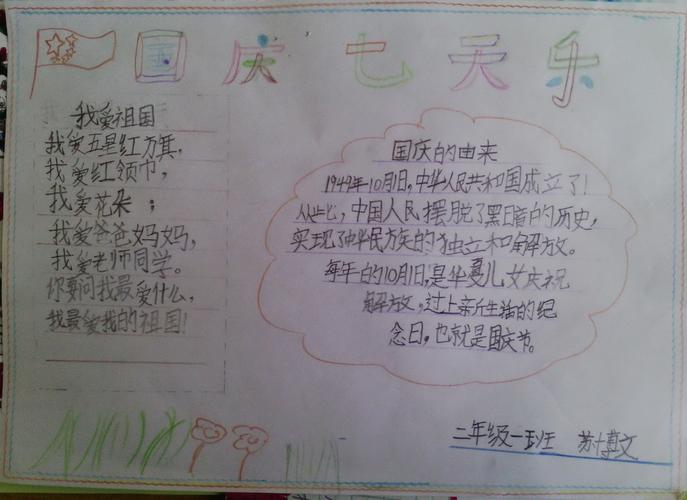 国庆七天乐
我爱祖国
我爱五星红方旗,
我爱红领巾,
我爱花朵;
我爱爸爸妈妈,
我爱老师同学。
你要问我最爱什么,
我最爱我的祖国!
国庆的由来
1949年10月1日,中华人民共和国成立了!
从此,中国人民摆脱了黑暗的历史,
实现了中华民族的独立和解放。
每年的10月1日,是华夏儿女庆祝
解放,过上新生活的纪
念日,也就是国庆节。
二年级一班 苏博文